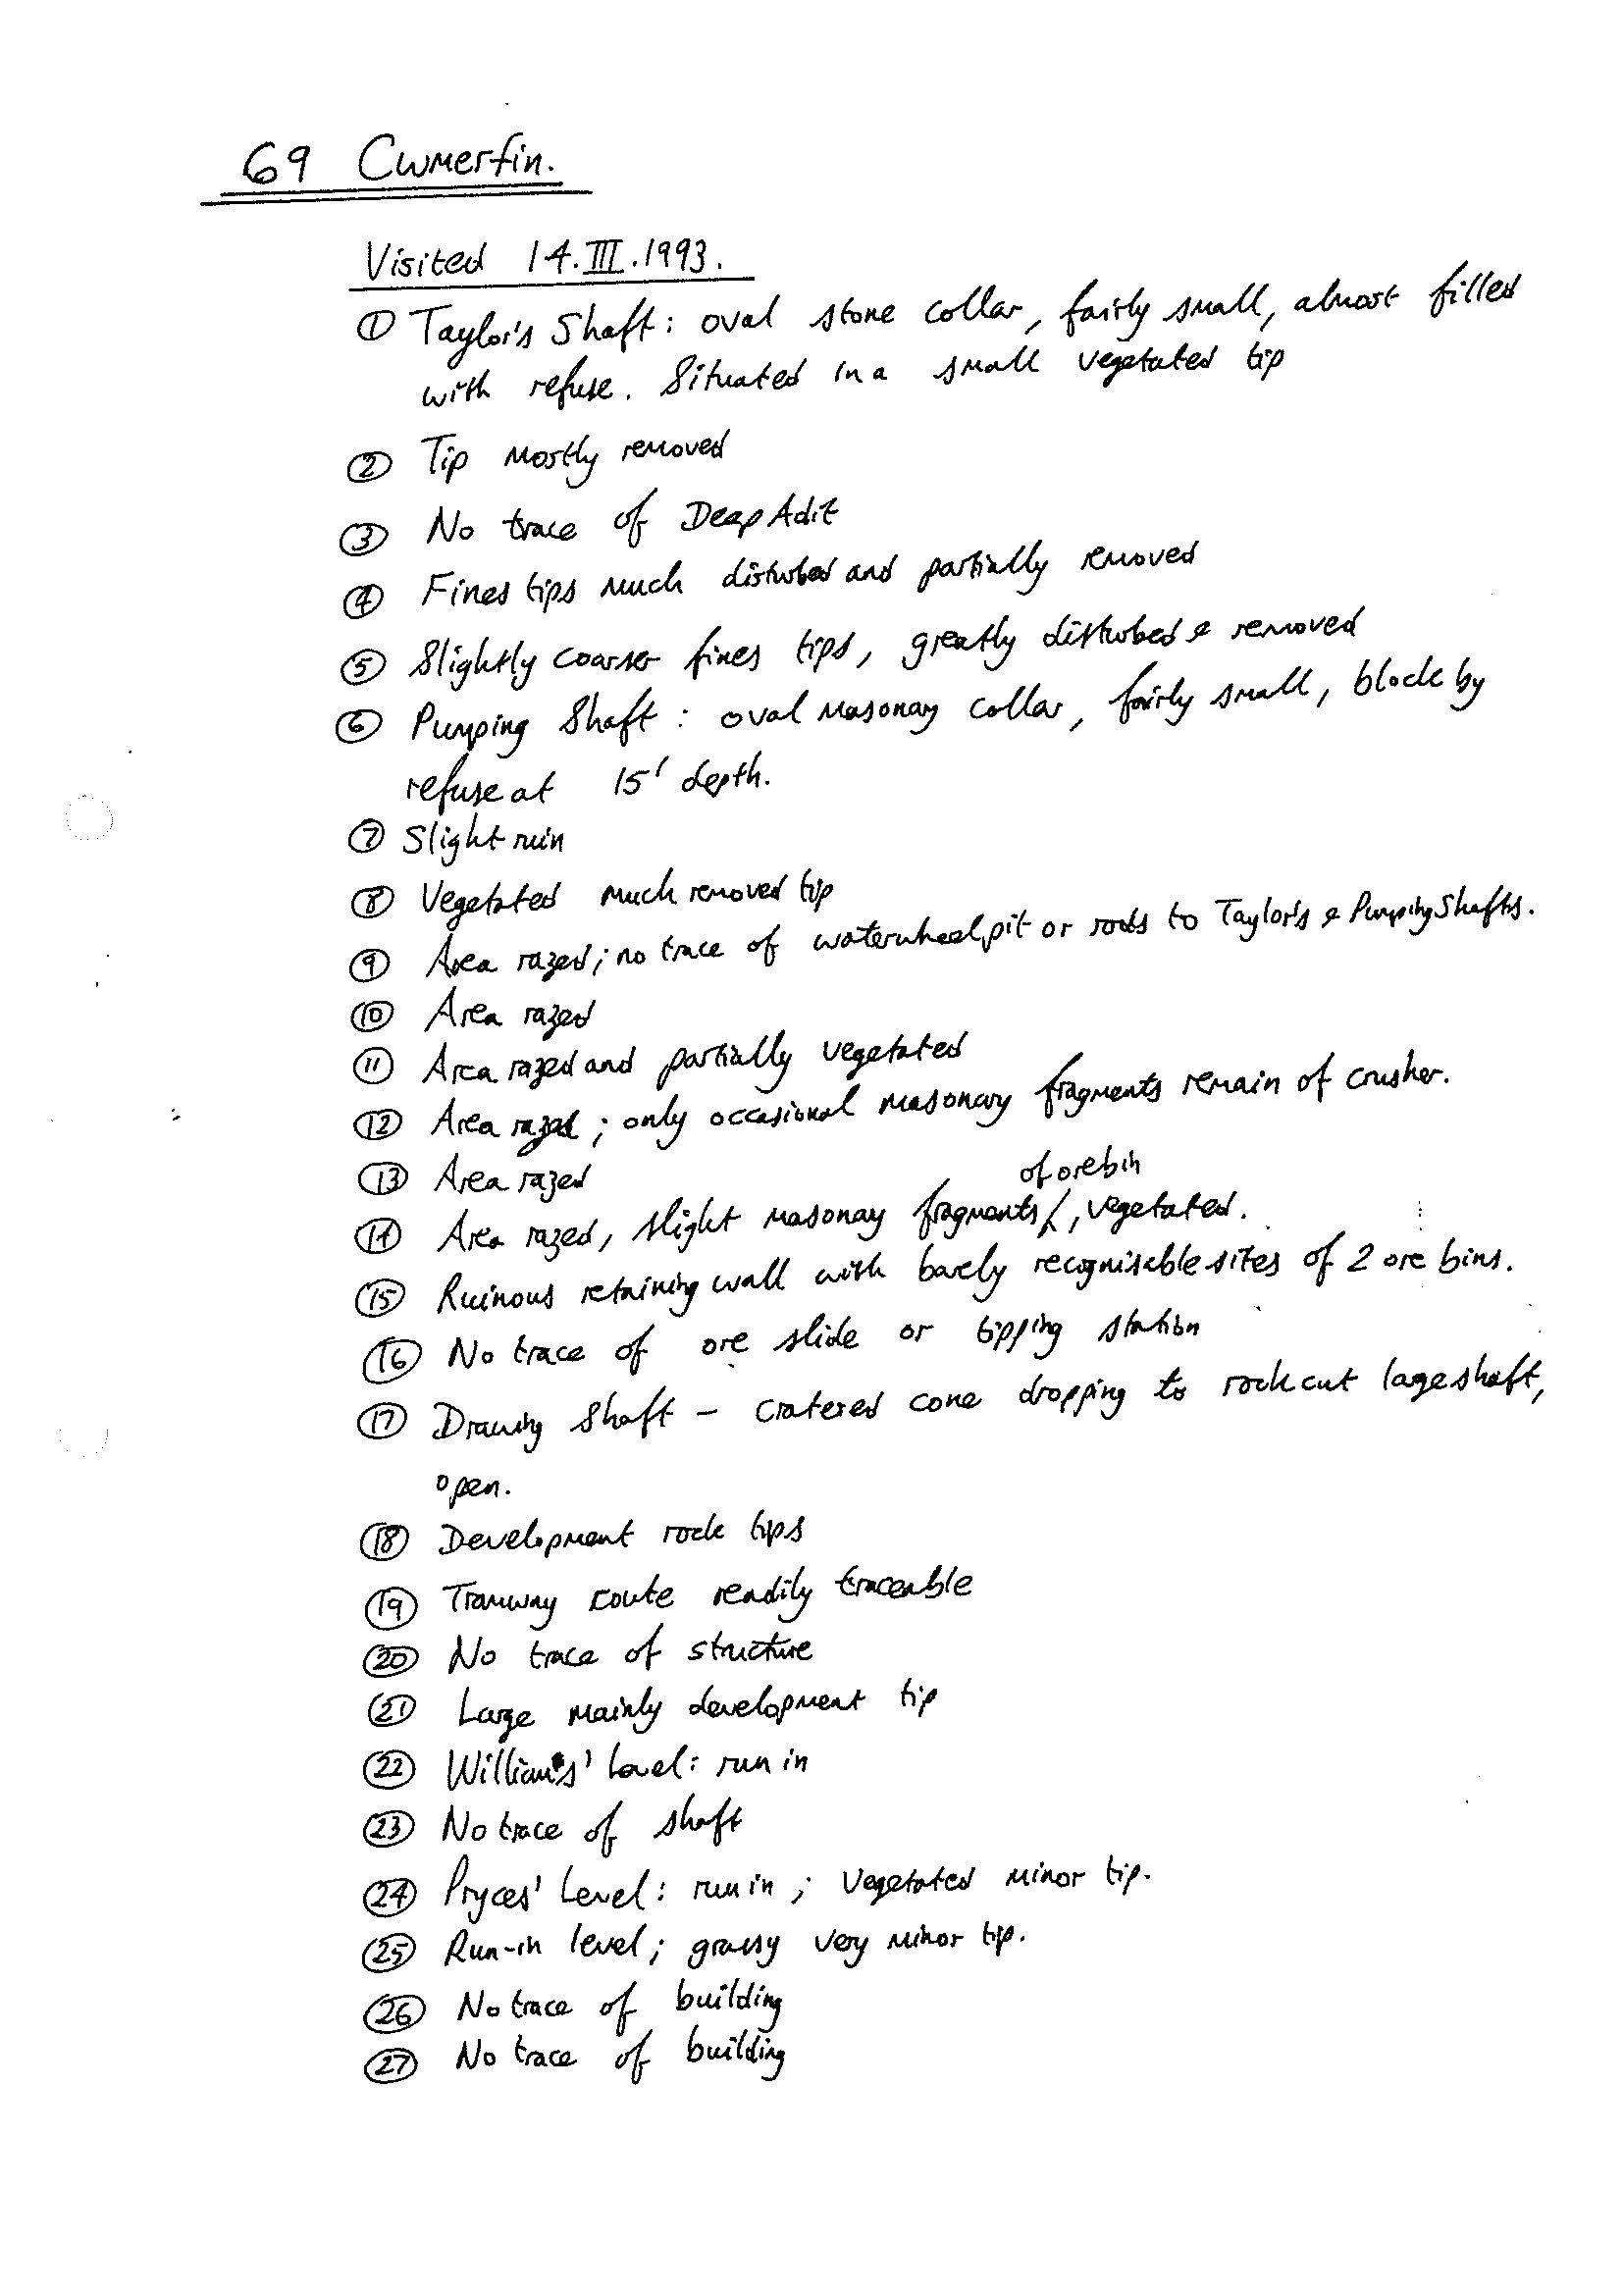 69 Cwmerfin.
Visited 14.III.1993.
① Taylor's Shaft: oval stone collar, fairly small, almost filled
with refuse. Situated in a small vegetated tip
② Tip mostly removed
③ No trace of Deep Adit
④ Fines tips much disturbed and partially removed
⑤ Slightly coarser fines tips, greatly disturbed & removed
⑥ Pumping Shaft: oval masonay collar, fairly small, block by
refuse at 15' depth.
⑦ Slight ruin
⑧ Vegetated much removed tip
⑨ Area razed; no trace of waterwheelpit or rods to Taylor's & Pumping Shafts.
⑩ Area razed
⑪ Area razed and partially vegetated
⑫ Area razed; only occasional masonary fragments remain of crusher.
⑬ Area razed
of orebin
⑭ Area razed, slight masonay fragments, vegetated.
⑮ Ruinous retaining wall with barely recognisable sites of 2 ore bins.
⑯ No trace of ore slide or tipping station
⑰ Drawing Shaft - cratered cone dropping to rock cut lage shaft,
open.
⑱ Development rock tips
⑲ Tramway route readily traceable
⑳ No trace of structure
㉑ Large mainly development tip
㉒ William's' Level: run in
㉓ No trace of shaft
㉔ Pryces' Level: run in; vegetated minor tip.
㉕ Run-in level; grassy very minor tip.
㉖ No trace of building
㉗ No trace of building